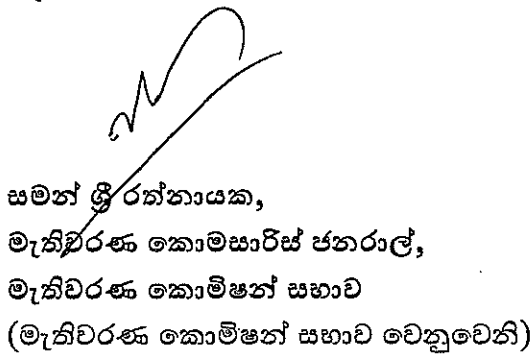 සමන් ශ්‍රී රත්නායක,
මැතිවරණ කොමසාරිස් ජනරාල්,
මැතිවරණ කොමිෂන් සභාව
(මැතිවරණ කොමිෂන් සභාව වෙනුවෙනි)